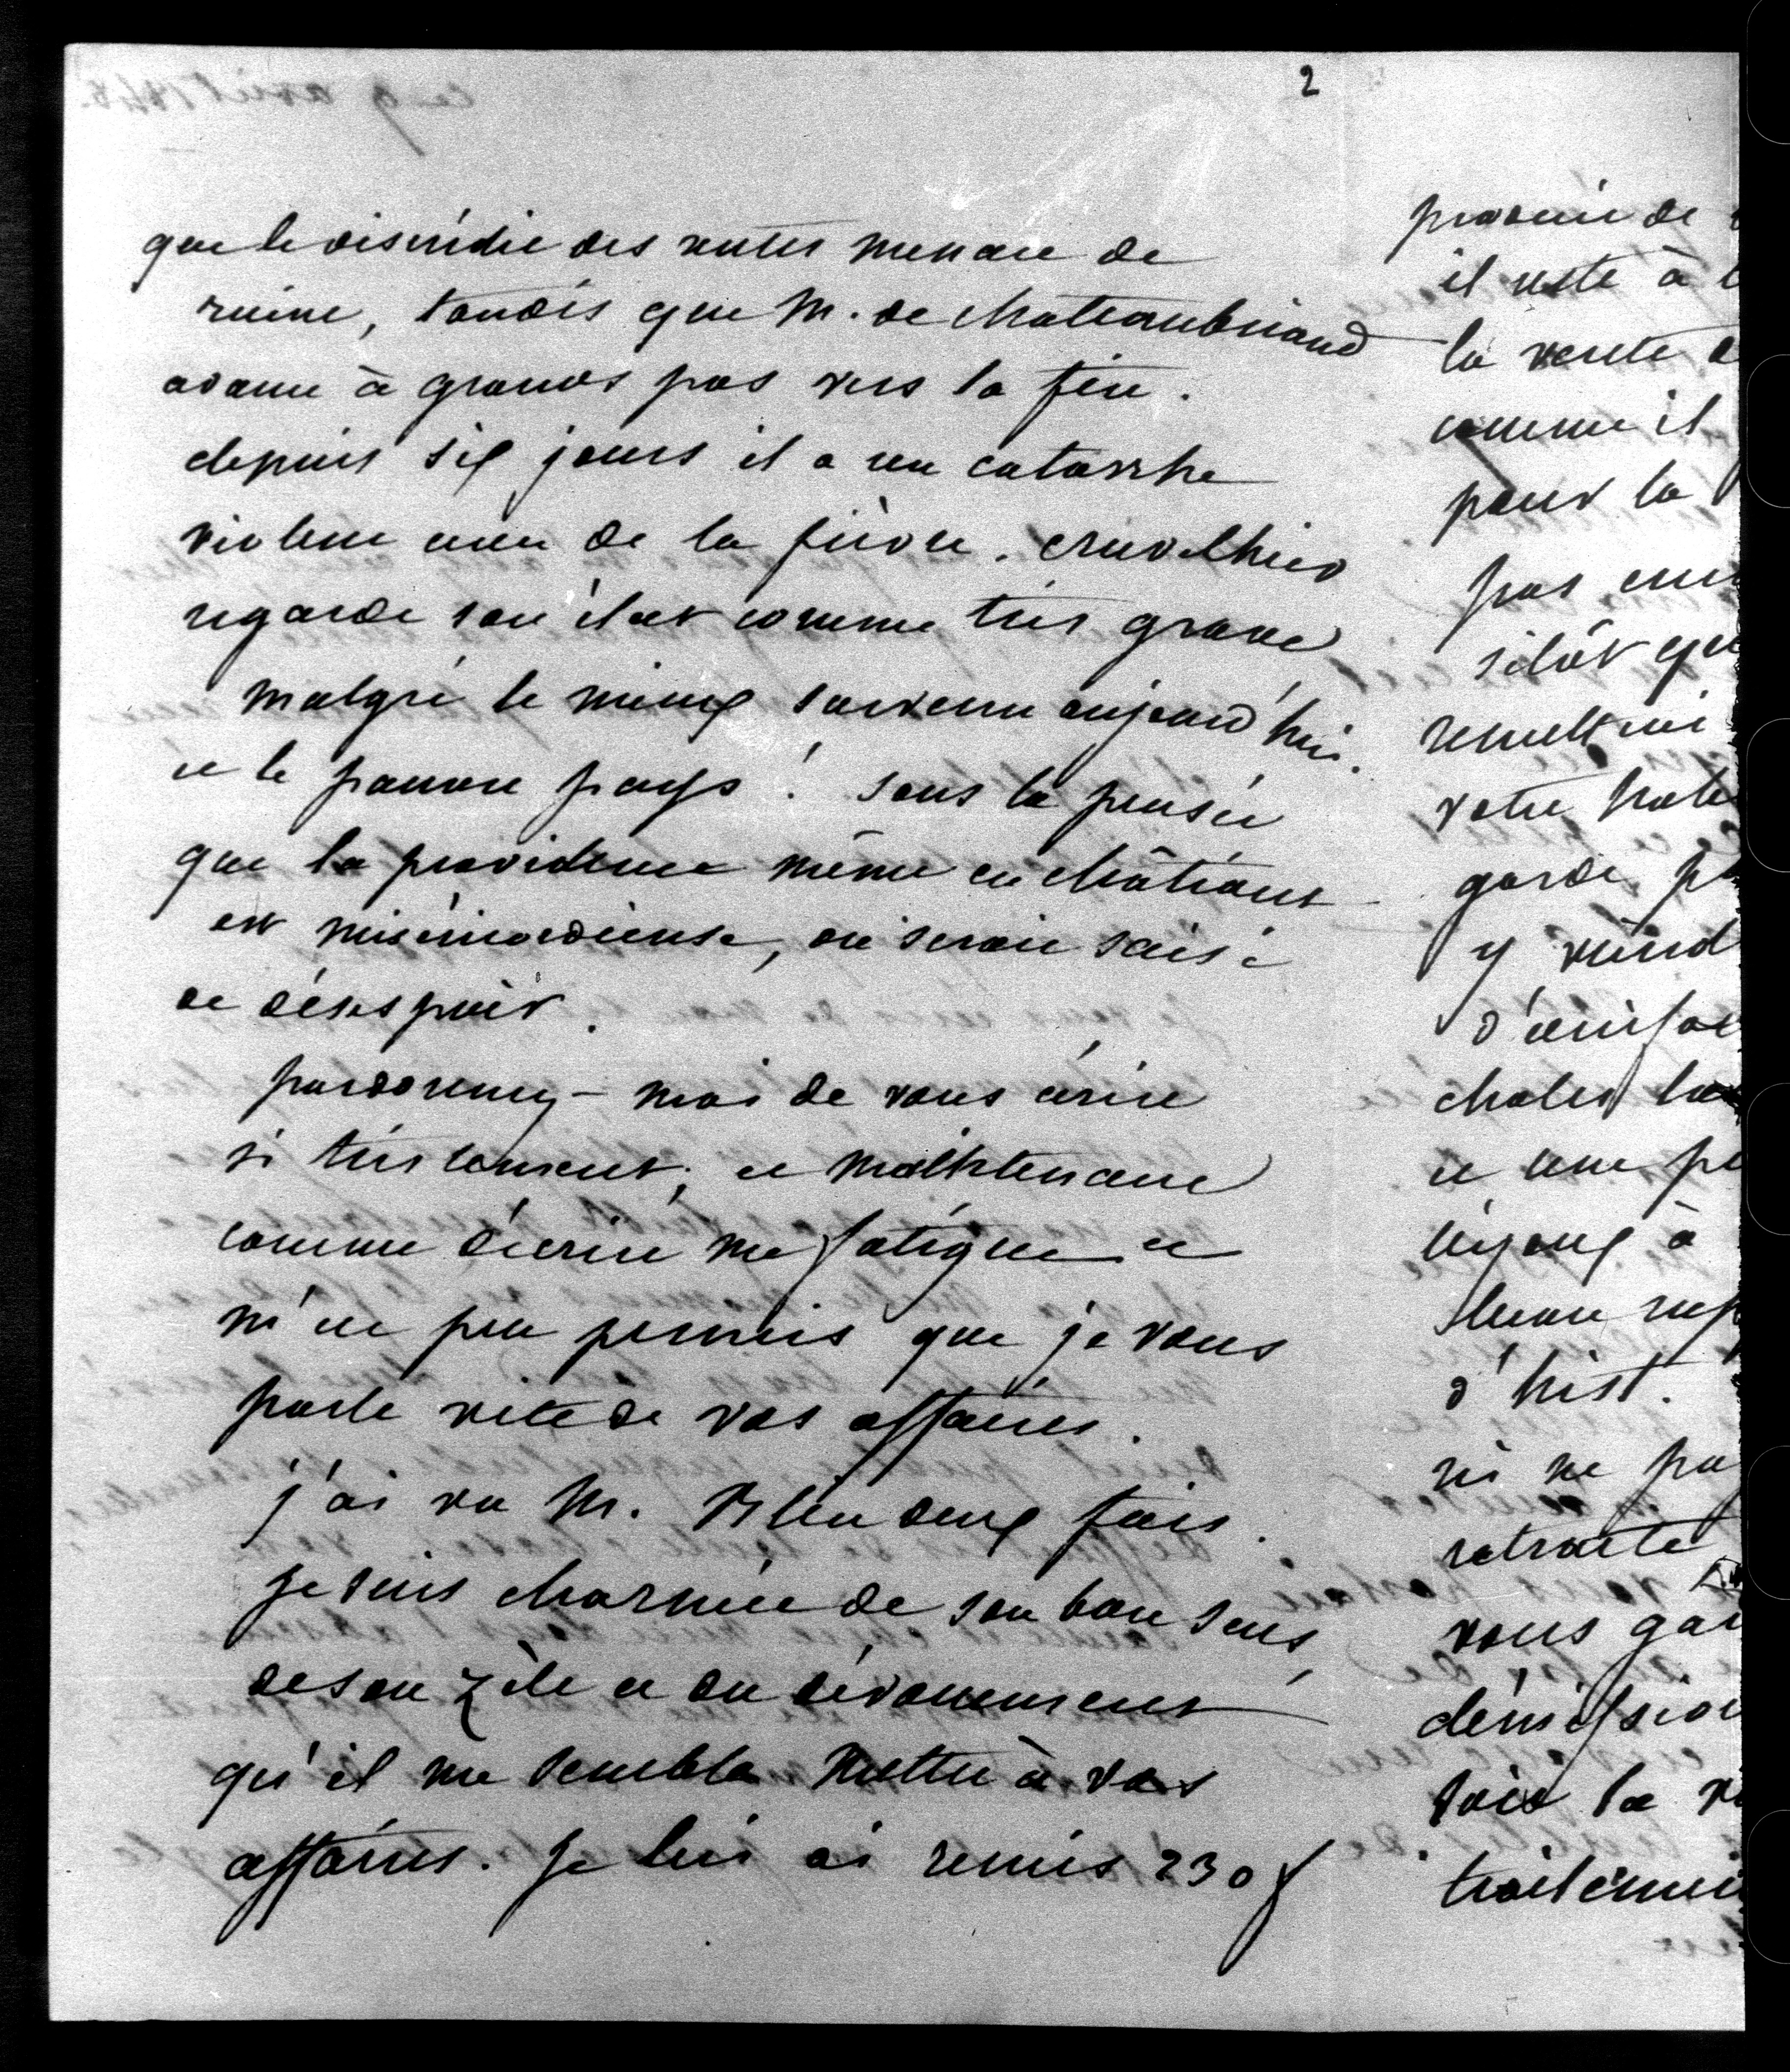 2
que le discrédit des rentes menace de
ruine, tandis que M. de chateaubriand
avance à grands pas vers la fin.
depuis six jours il a un catarrhe
violent avec de la fièvre. cruvelhier
regarde son état comme très grave
malgré le mieux survenu aujourd'hui.
et le pauvre pays ! sans la pensée
que la providence même en châtiant
est miséricordieuse, on serait saisi
de désespoir.
pardonnez-moi de vous écrire
si tristement, et maintenant
comme décrire me fatigue et
m'est peu permis que je vous
parle vite de vos affaires.
j'ai vu M. Bleu deux fois.
je suis charmée de son bon sens,
de son zèle et du dévouement
qu'il me semble mettre à vos
affaires. Je lui ai remis 230 f
provenir de
il reste à
la vente
comme il
pour la
pas
sitôt que
remettrai
votre
garde
y
châles
et une
à
d'hist.
ni ne
retraite
vous
soit la